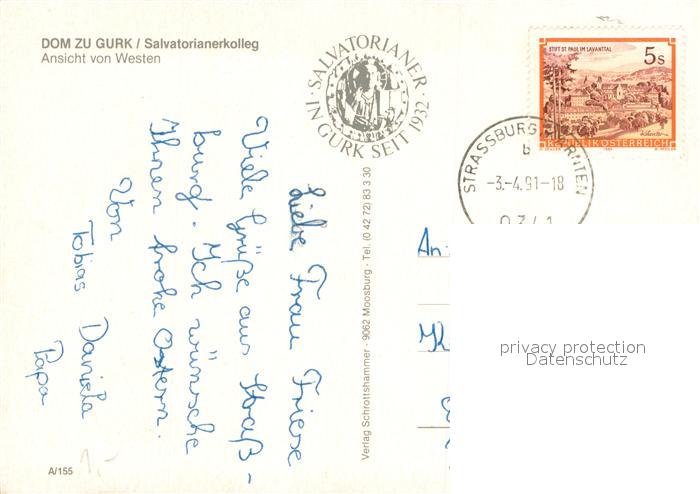 DOM ZU GURK / Salvatorianerkolleg
Ansicht von Westen
· SALVATORIANER ·
IN GURK SEIT 1932
STIFT ST. PAUL IM LAVANTTAL
5s
REPUBLIK ÖSTERREICH
STRASSBURG, KÄRNTEN
b
-3.-4.91-18
Liebe Frau Friese
Viele Grüße aus Straß-
burg. Ich wünsche
Ihnen frohe Ostern.
Von
Tobias Daniela
Papa
Verlag Schrottshammer · 9062 Moosburg · Tel. (0 42 72) 83 3 30
An
privacy protection
Datenschutz
A/155
1,-